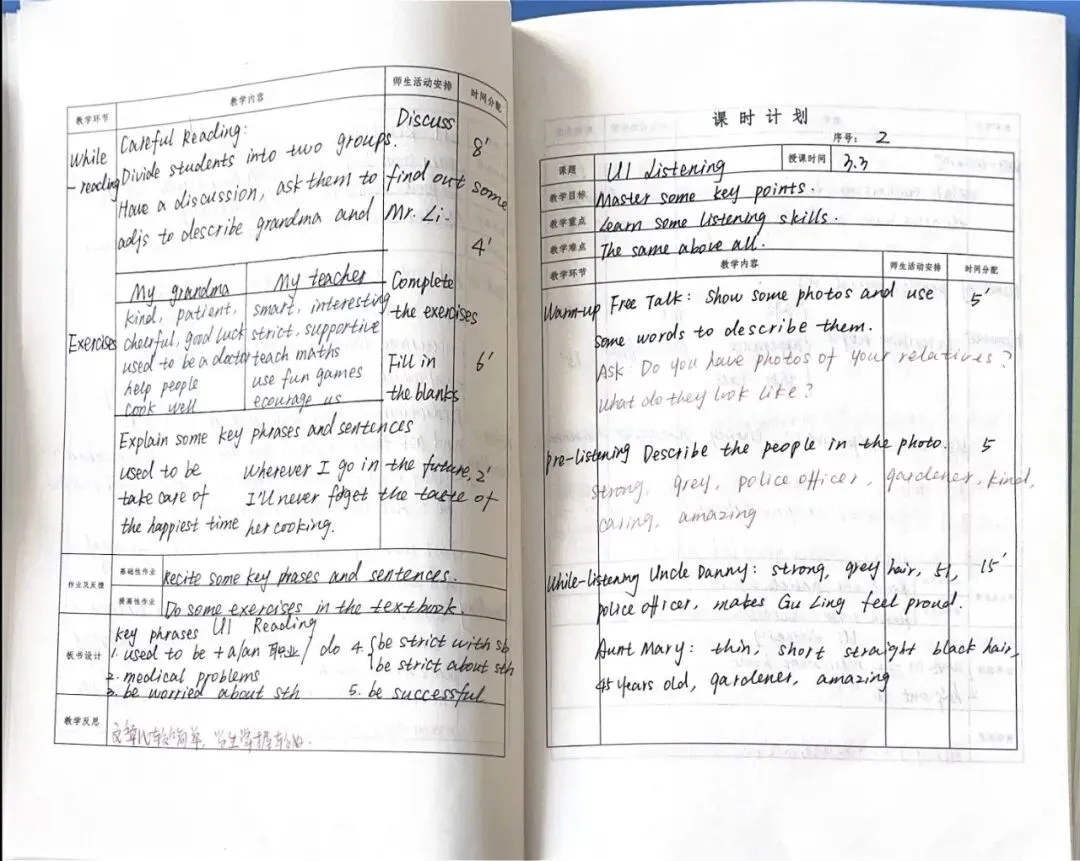 教学环节 教学内容 师生活动安排 时间分配
While
-reading
Careful Reading:
Divide students into two groups.
Have a discussion, ask them to find out some
adjs to describe grandma and Mr. Li.
Discuss
8'
4'
Exercises
My grandma
kind, patient,
cheerful, good luck
used to be a doctor
help people
cook well
My teacher
smart, interesting
strict, supportive
teach maths
use fun games
ecourage us
Complete
the exercises
Fill in
the blanks
6'
Explain some key phrases and sentences
used to be
take care of
the happiest time
wherever I go in the future,
I'll never foget the taste of
her cooking.
2'
作业及反馈
基础性作业 Recite some key phrases and sentences.
提高性作业 Do some exercises in the textbook.
板书设计
U1 Reading
key phrases
1. used to be + a/an 职业 / do
2. medical problems
3. be worried about sth
4. be strict with sb
be strict about sth
5. be successful
教学反思
文章比较简单,学生掌握较好.
课时计划
序号: 2
课题 U1 Listening 授课时间 3.3
教学目标 Master some key points.
教学重点 Learn some listening skills.
教学难点 The same above all.
教学环节 教学内容 师生活动安排 时间分配
Warm-up Free Talk: Show some photos and use 5'
some words to describe them.
Ask: Do you have photos of your relatives?
What do they look like?
Pre-listening Describe the people in the photo. 5
strong, grey, police officer, gardener, kind,
caring, amazing
While-listening Uncle Danny: strong, grey hair, 51, 15'
police officer, makes Gu Ling feel proud.
Aunt Mary: thin, short straight black hair,
45 years old, gardener, amazing